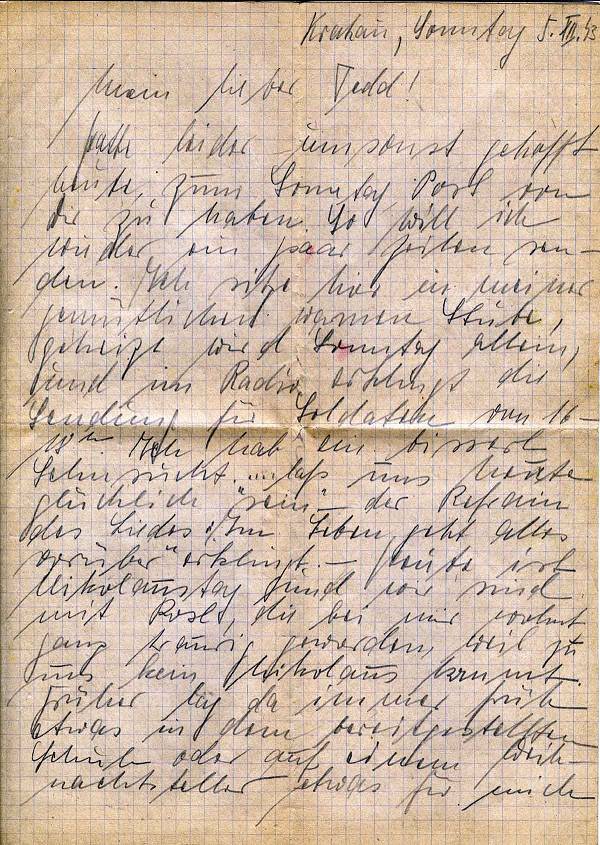 Krakau, Sonntag 5. XII. 43
Mein lieber Tedd!
hatte leider umsonst gehofft
heute, zum Sonntag Post von
Dir zu haben. So will ich
wieder ein paar Zeilen sen-
den. Ich sitze hier in meiner
gemütlichen warmen Stube,
geheizt wird Sonntag allein,
und im Radio erklingt die
Sendung für Soldaten von 16-
18 h. Ich hab ein bisserl
Sehnsucht... "laß uns heute
glücklich sein" - der Refrain
des Liedes "Im Leben geht alles
vorüber" erklingt. - Heute ist
Nikolaustag und wir sind
mit Rosl, die bei mir wohnt
ganz traurig geworden, weil zu
uns kein Nikolaus kommt.
Früher lag da immer früh
etwas in dem bereitgestellten
Schuh oder auf einem Weih-
nachtsteller etwas für mich